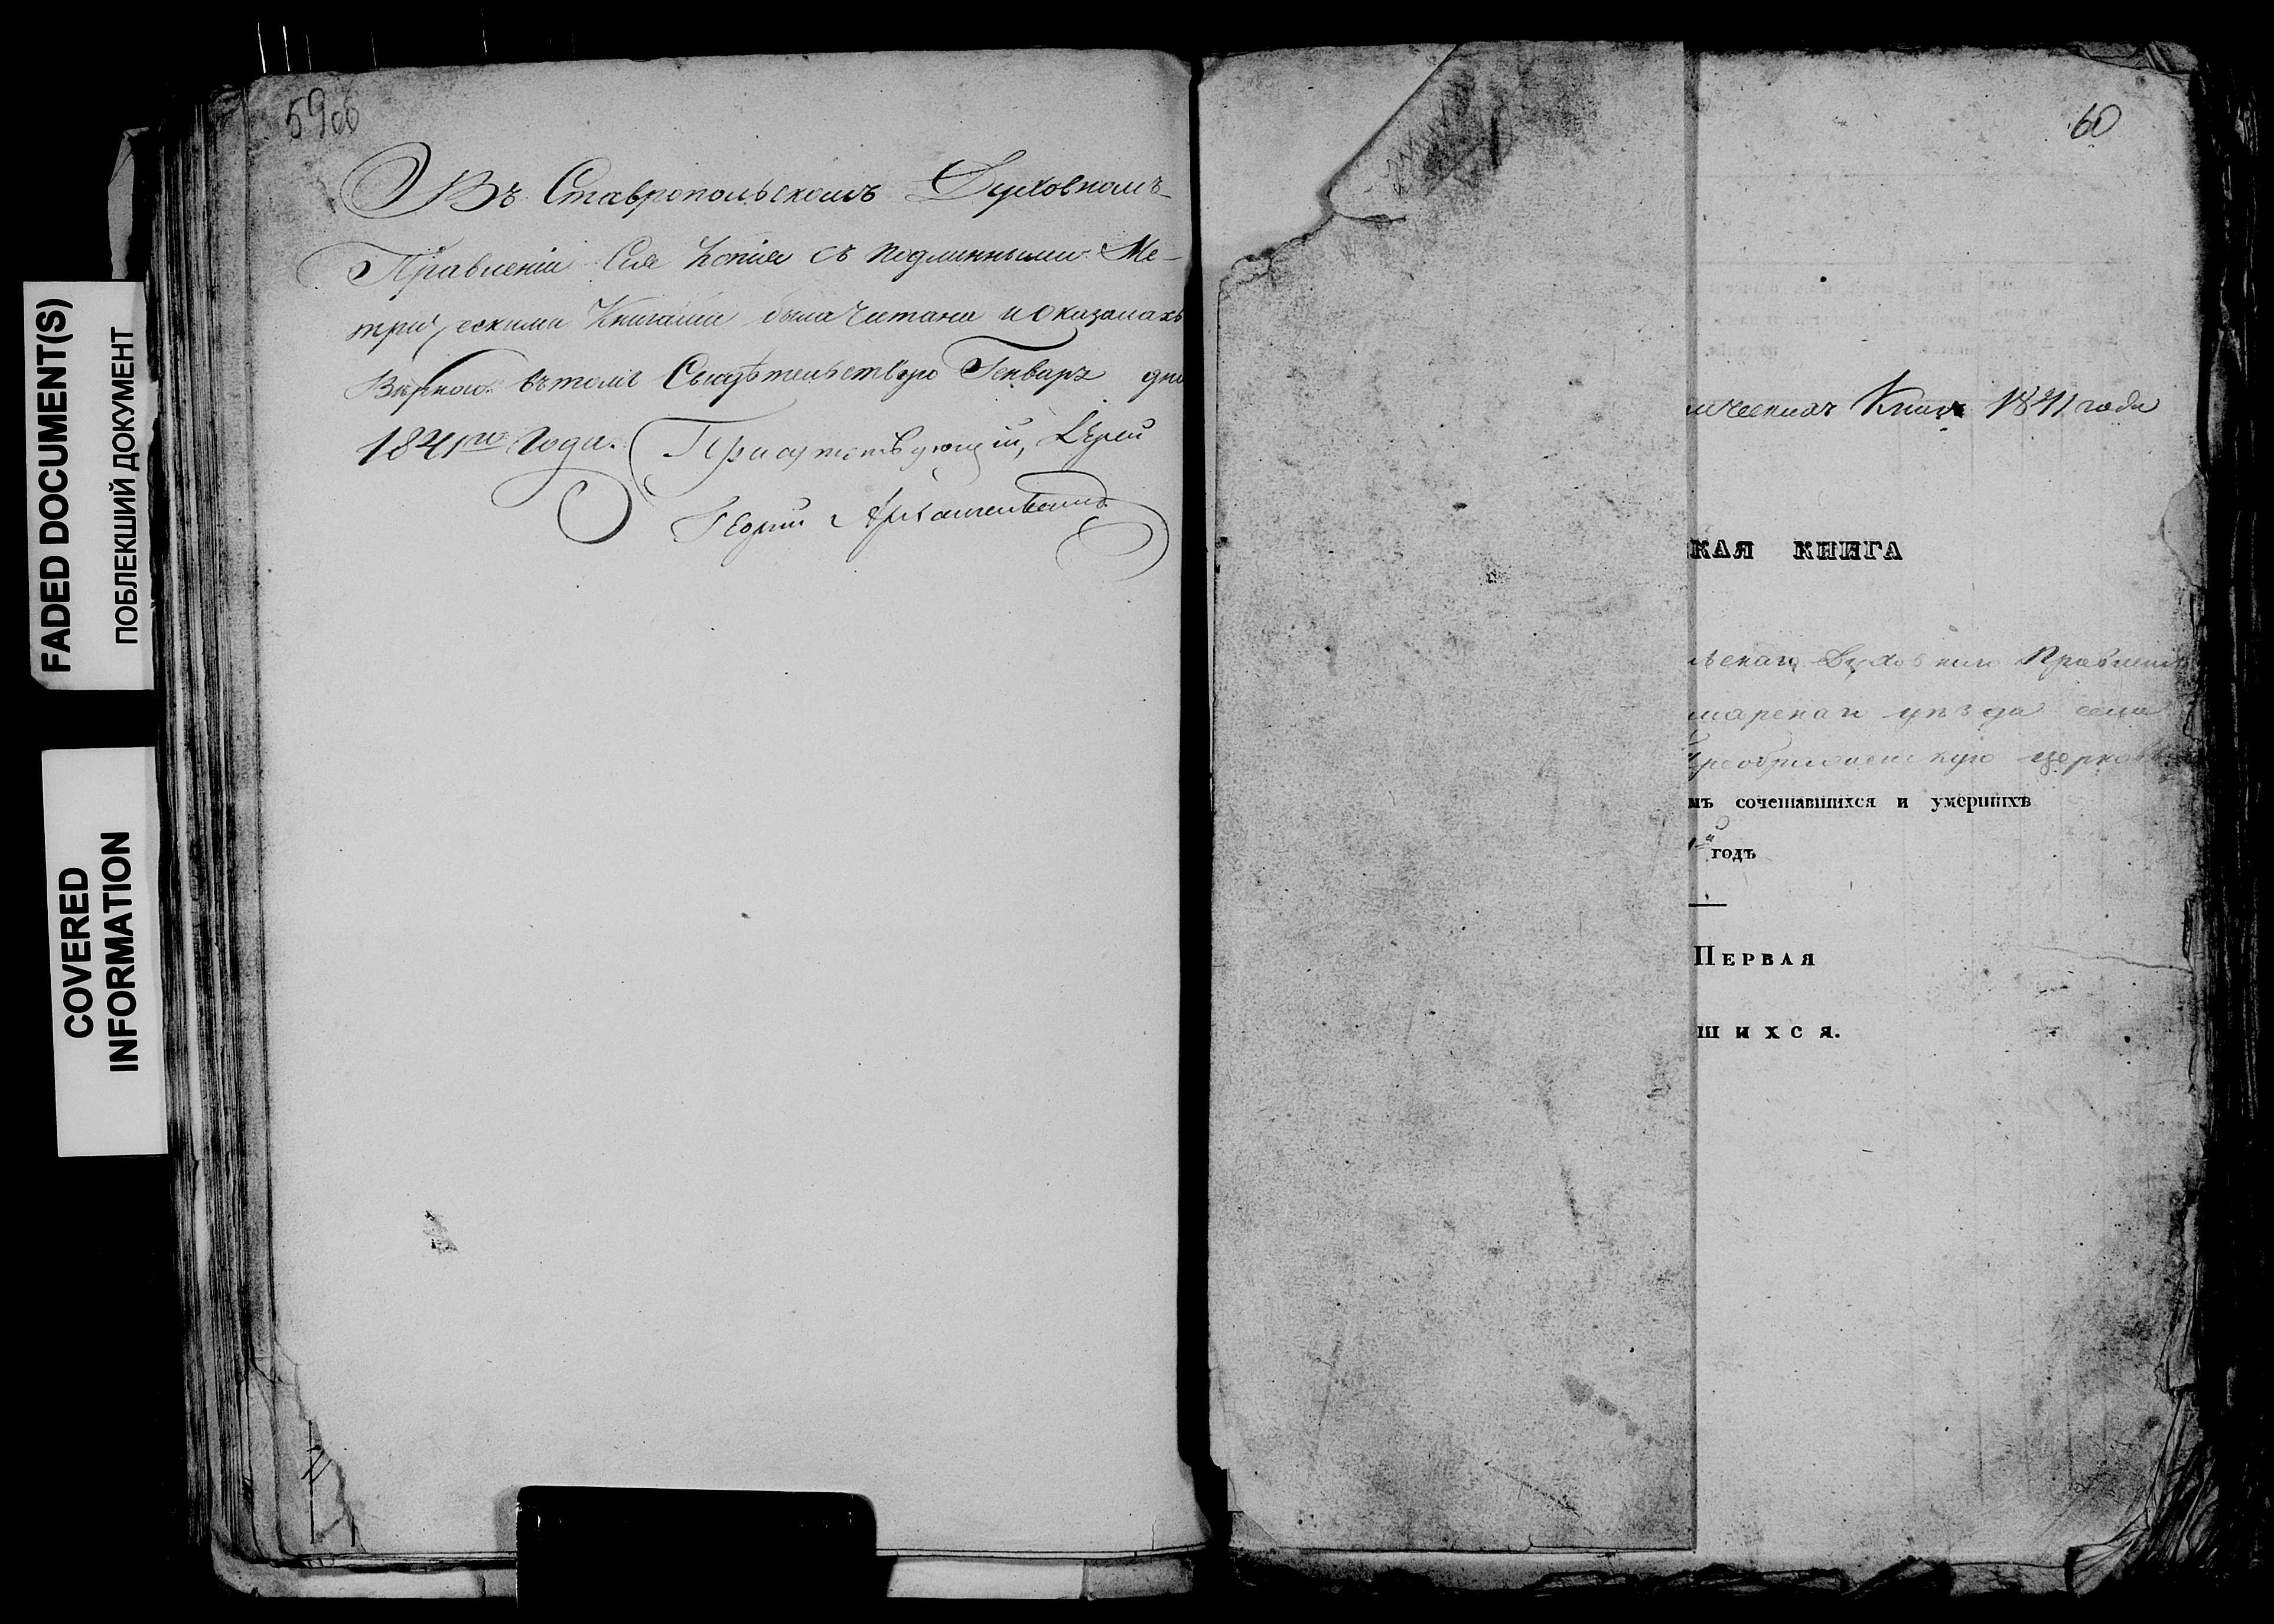 FADED DOCUMENT(S)
ПОБЛЕКШИЙ ДОКУМЕНТ
COVERED
INFORMATION
59об
Въ Ставропольскомъ Духовномъ
Правленіи Сія Копія съ подлинными Ме-
трическими Книгами была читана и оказалась
Вѣрною. въ томъ Свидѣтельствую Генваря дня
1841го Года. Присутствующій, Іерей
Георгій Архангельскій
60
ическихъ Книгъ 1841 года
КАЯ КНИГА
льскаго Духовнаго Правленія
марскаго уѣзда села
Преображенскую церковь
мъ сочетавшихся и умершихъ
годъ
Первая
шихся.